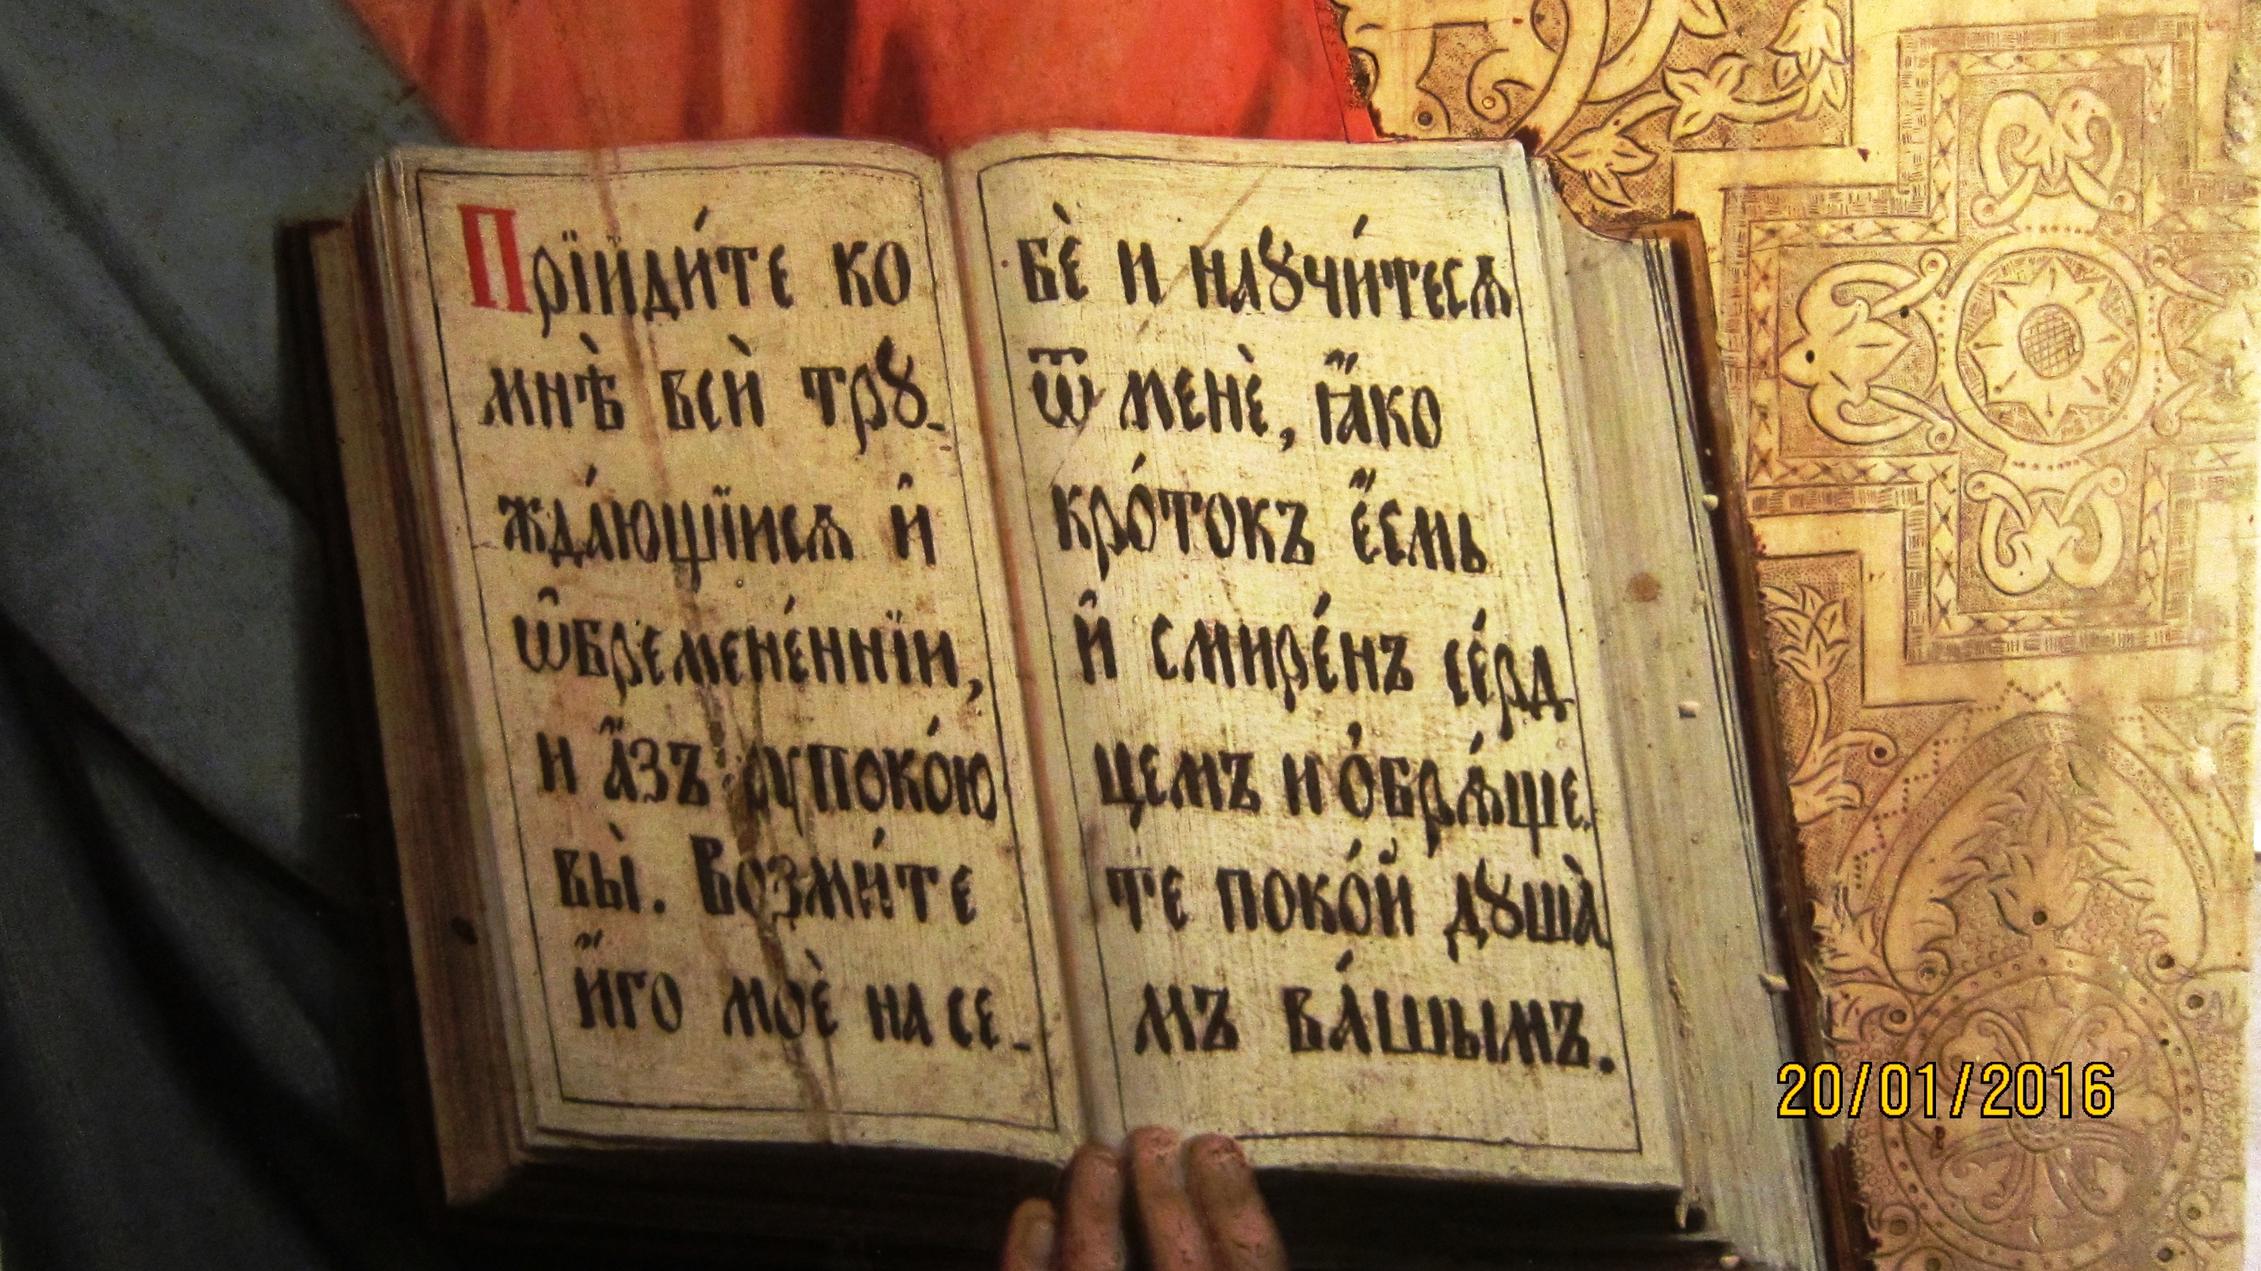 Прїйди́те ко
мнѣ̀ всѝ трꙋ-
жда́ющїися и҆
ѡ҆бремене́ннїи,
и а҆́зъ оупоко́ю
вы̀. Возми́те
и҆́го моѐ на се-
бѐ и наꙋчи́теся
ѿ менѐ, ꙗ҆́ко
кро́токъ е҆́смь
и҆ смире́нъ се́рд
цемъ и ѻбря́ще-
те поко́й дꙋша̀
мъ ва́шымъ.
20/01/2016